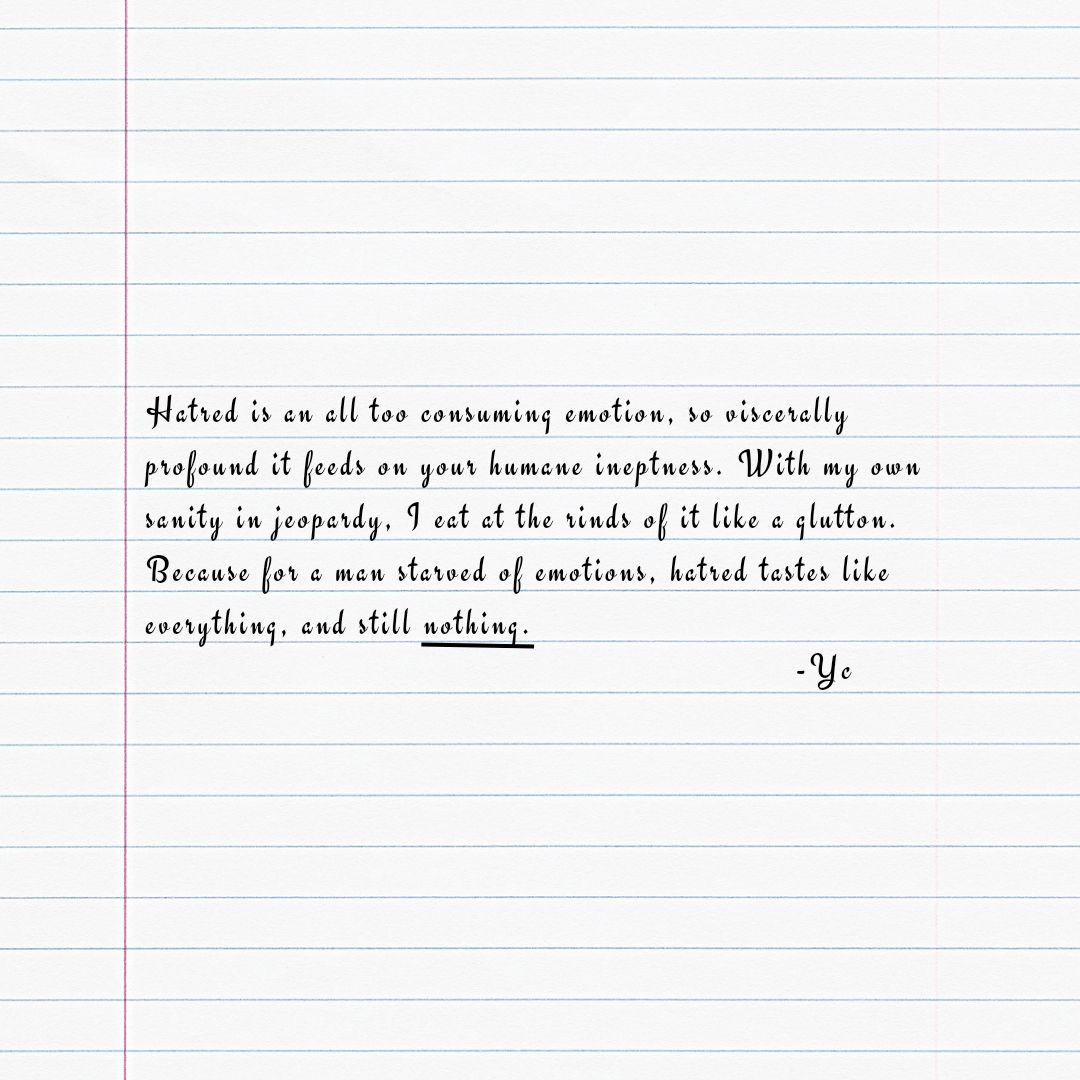 Hatred is an all too consuming emotion, so viscerally
profound it feeds on your humane ineptness. With my own
sanity in jeopardy, I eat at the rinds of it like a glutton.
Because for a man starved of emotions, hatred tastes like
everything, and still nothing.
-Yc